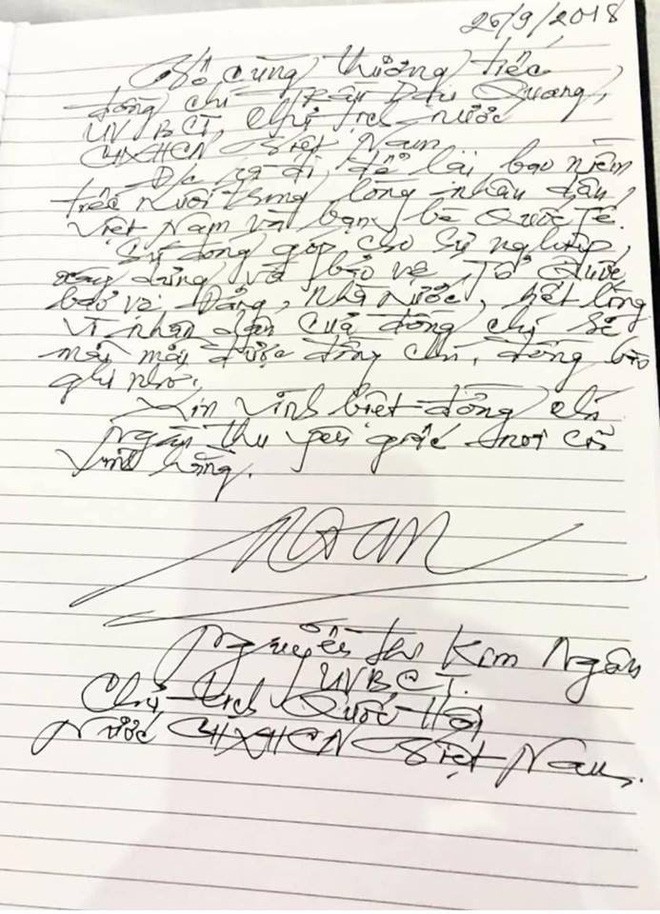 26/9/2018
Vô cùng thương tiếc
đồng chí Trần Đại Quang,
UV BCT, Chủ tịch nước
CHXHCN Việt Nam
Đ/c ra đi, để lại bao niềm
tiếc nuối trong lòng nhân dân,
Việt Nam và bạn bè Quốc Tế.
Sự đóng góp cho sự nghiệp,
xây dựng và bảo vệ Tổ Quốc
bảo vệ Đảng, Nhà nước, hết lòng
vì nhân dân của đồng chí sẽ
mãi mãi được đồng chí, đồng bào
ghi nhớ.
Xin vĩnh biệt đồng chí
Ngàn thu yên giấc nơi cõi
vĩnh hằng.
Ngân
Nguyễn Thị Kim Ngân
UVBCT.
Chủ tịch Quốc Hội
Nước CHXHCN Việt Nam.